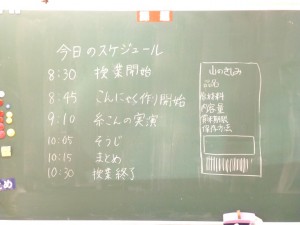 今日のスケジュール
8:30 授業開始
8:45 こんにゃく作り開始
9:10 糸こんの実演
10:05 そうじ
10:15 まとめ
10:30 授業終了
山のさしみ
品名
原材料
内容量
賞味期限
保存方法
とめ